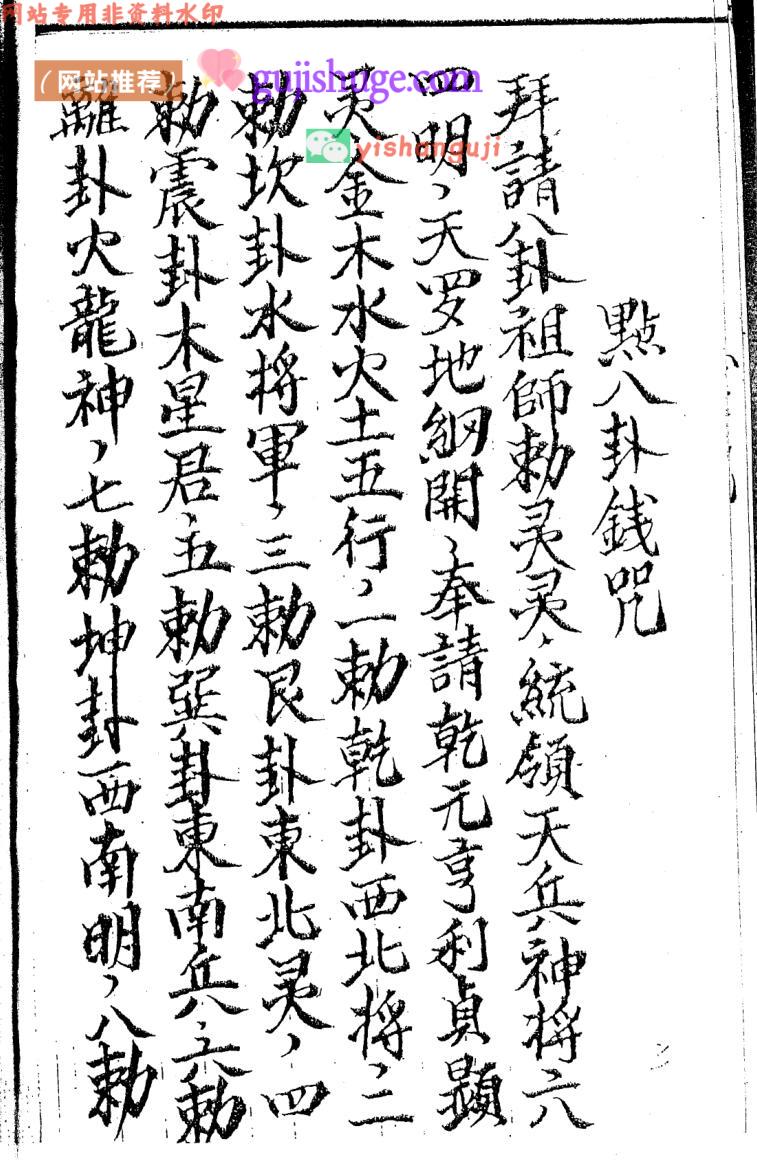 网站专用非资料水印
（网站推荐）
gujishuge.com
yishanguji
點八卦錢咒
拜請八卦祖師勅灵灵，統領天兵神将六
四明，天罗地網開，奉請乾元亨利貞顕
灵金木水火土五行，一勅乾卦西北将，二
勅坎卦水将軍，三勅艮卦東北灵，四
勅震卦木星君，五勅巽卦東南兵，六勅
離卦火龍神，七勅坤卦西南明，八勅